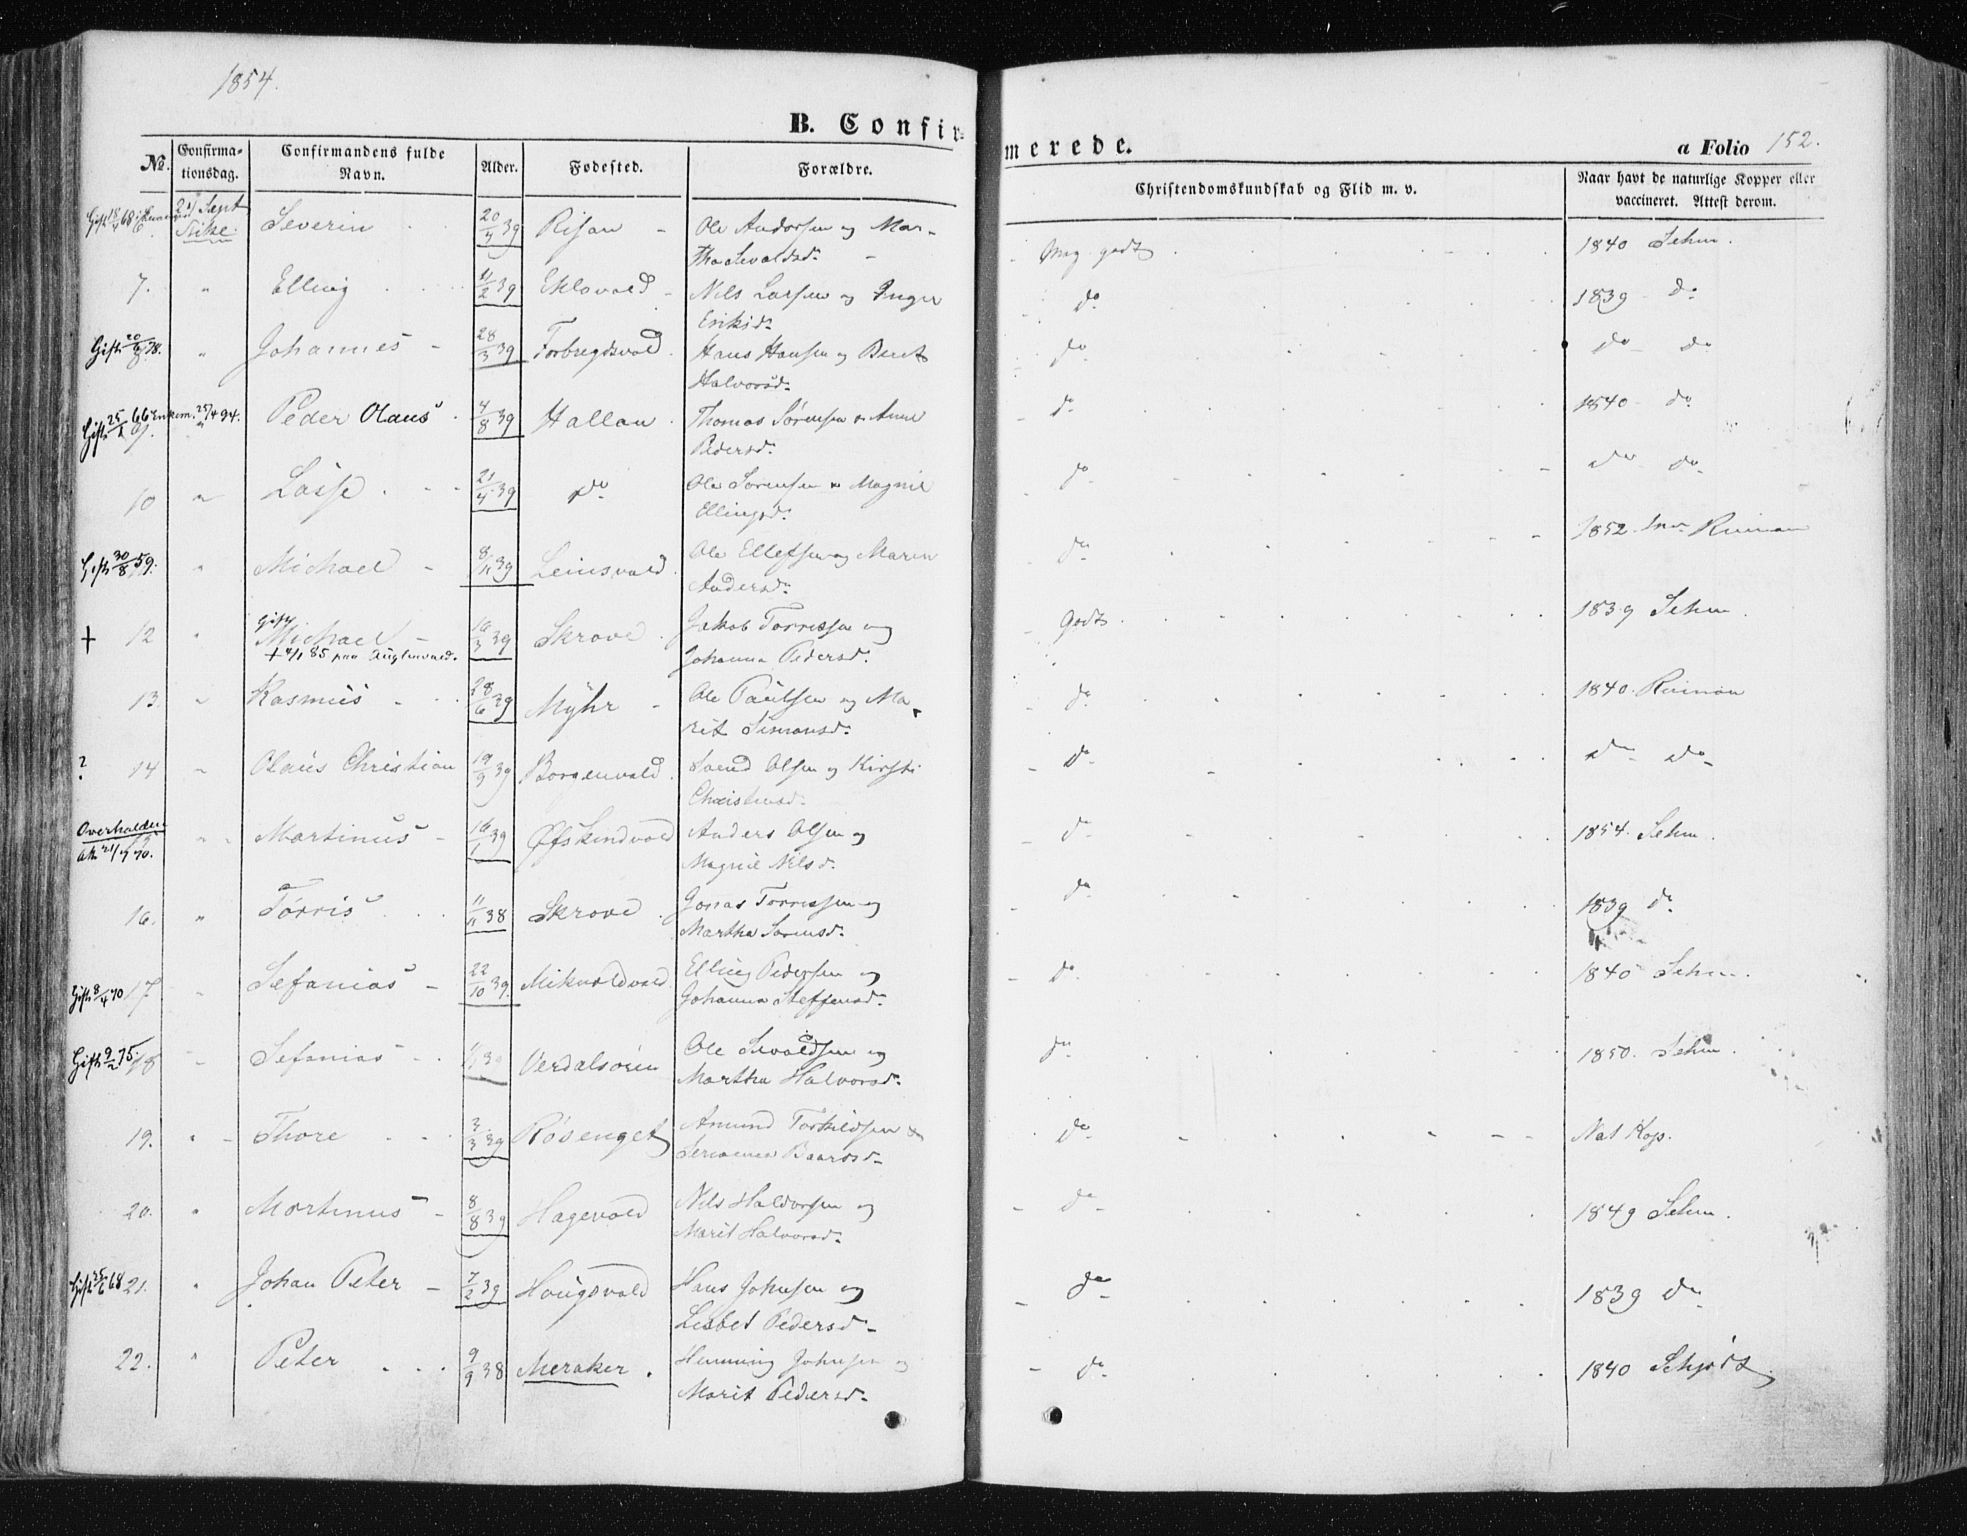 1854.
B. Confirmerede.
a Folio 152.
No. Confirmationsdag. Confirmandens fulde Navn. Alder. Fødested. Forældre. Christendomskundskab og Flid m. v. Naar havt de naturlige Kopper eller vaccineret. Attest derom.
Gift 18/4 68 6. 24 Sept Severin 20/4 39 Risan Ole Andorsen og Mar- Mg. godt 1840 Sehm.
tha Sevaldsd.
7. " Elling 11/2 39 Eklovald Nils Larsen og Inger do 1839 do
Eriksd.
Gift 20/6 78. " Johannes 28/3 39 Forbregdsvald Hans Hansen og Beret do do do
Halvorsd.
Gift 25/1 66 Enkem. 25/4 94. 9. " Peder Olaus 4/8 39 Hallan Thomas Sørensen & Anne do 1840 do
Pedersd.
10 " Lasse 21/4 39 do Ole Sørensen & Magnil do do do
Ellingsd.
Gift 30/8 59. " Michael 8/11 39 Leinsvald Ole Ellefsen og Maren do 1852. Rinnan
Andersd.
gift
† 12 " Michael 16/3 39 Skrove Jakob Torressen og Godt 1839 Sehm.
† 4/1 85 paa Auglenvald. Johanna Pedersd.
13 " Rasmus 28/6 39 Myhr Ole Paulsen og Ma- do 1840. Rinnan
rit Simonsd.
? 14 " Olaus Christian 19/9 39 Borgenvald Svend Olsen og Kirsti do do do
Christensd.
Overhalden
att. 21/7 70. " Martinus 16/1 39 Øfskindvald Anders Olsen og do 1854. Sehm.
Magnil Nilsd.
16. " Tørris 11/11 38 Skrove Jonas Torressen og do 1839 do
Martha Sørensd.
Gift 8/4 70 17. " Sefanias 22/10 39. Mikvoldvald Elling Pedersen og do 1840 Sehm.
Johanna Steffensd.
Gift 9/2 75. 18 " Sefanias 1/1 39 Verdalsøren Ole Sevaldsen og do 1850. Sehm.
Martha Halvorsd.
19. " Thore 3/3 39 Røsenget Amund Torkildsen & do Nat Kop.
Baarsd.
20. " Mortinus 8/8 39 Hagevald Nils Haldorsen og do 1849 Sehm.
Marit Halvorsd.
Gift 25/6 68 21. " Johan Peter 7/2 39 Hougsvald Hans Johnsen og do 1839 do
Lisbet Pedersd.
22. " Peter 9/9 38 Meraker. Henning Johnsen og do 1840 Schjødt
Marit Pedersd.